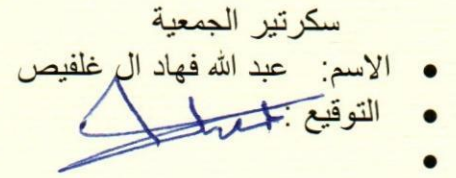 سكرتير الجمعية
• الاسم: عبد الله فهاد ال غلفيص
• التوقيع :
•